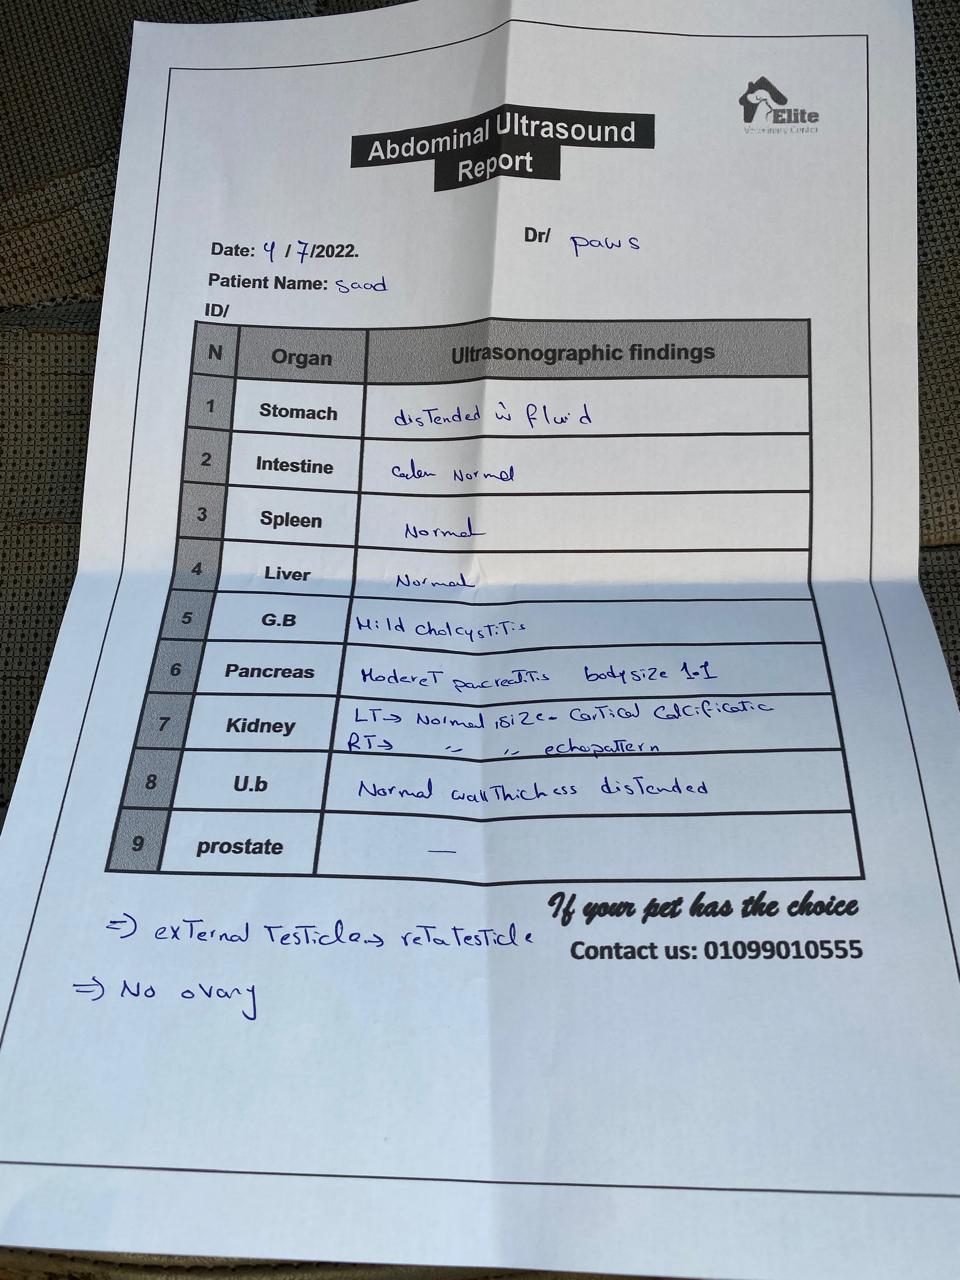 Elite
Veterinary Center
Abdominal Ultrasound
Report
Date: 4 / 7/2022.
Dr/ paws
Patient Name: saad
ID/
N Organ Ultrasonographic findings
1 Stomach disTended w̄ fluid
2 Intestine Normal
3 Spleen Normal
4 Liver Normal
5 G.B Mild cholcysTiTis
6 Pancreas ModereT pacreatitis body size 1.1
7 Kidney LT→ Normal, size - CorTical Calcificatic
RT→ 〃 〃 echopattern
8 U.b Normal wall Thickess disTended
9 prostate —
If your pet has the choice
Contact us: 01099010555
⇒ exTernal TesTicle → reTa TesTicle
⇒ No ovary